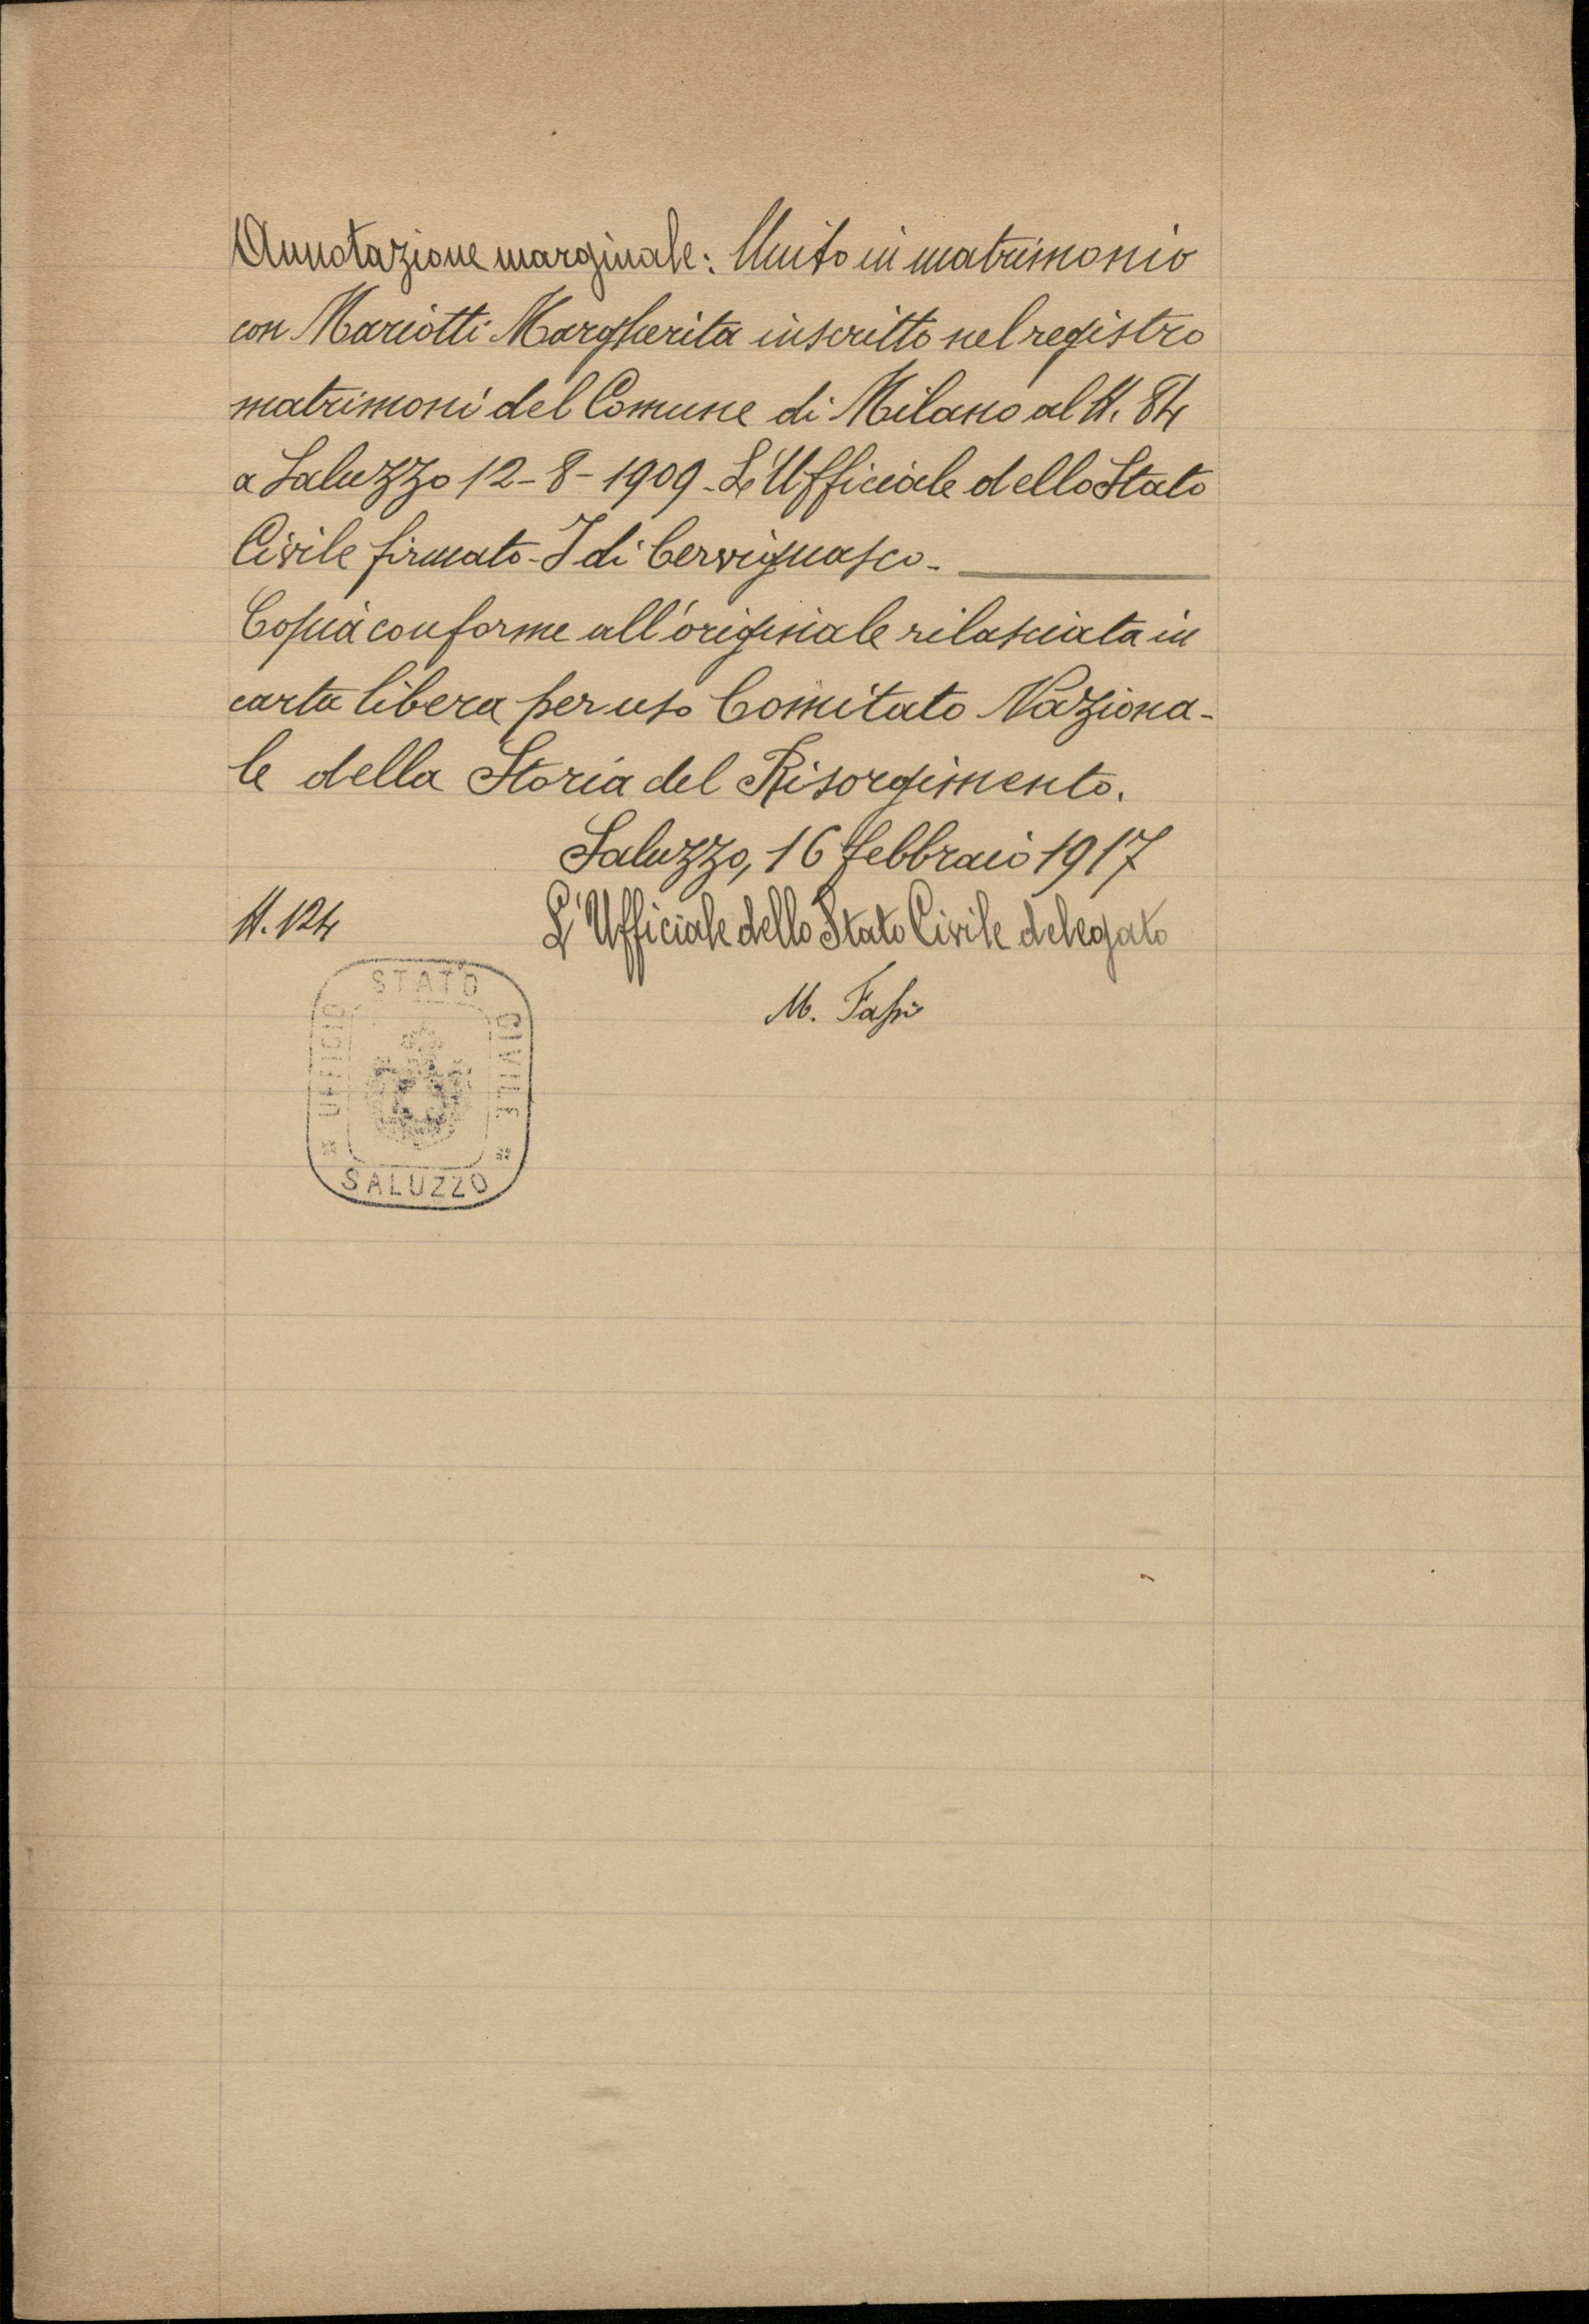 Annotazione marginale: Unito in matrimonio
con Mariotti Margherita inscritto nel registro
matrimoni del Comune di Milano al N. 84
a Saluzzo 12-8-1909 - L'Ufficiale dello Stato
Civile firmato - I di Cervignasco.
Copia conforme all'originale rilasciata in
carta libera per uso Comitato Naziona-
le della Storia del Risorgimento.
Saluzzo, 16 febbraio 1917
N. 124
L'Ufficiale dello Stato Civile delegato
M.
UFFICIO STATO CIVILE
SALUZZO